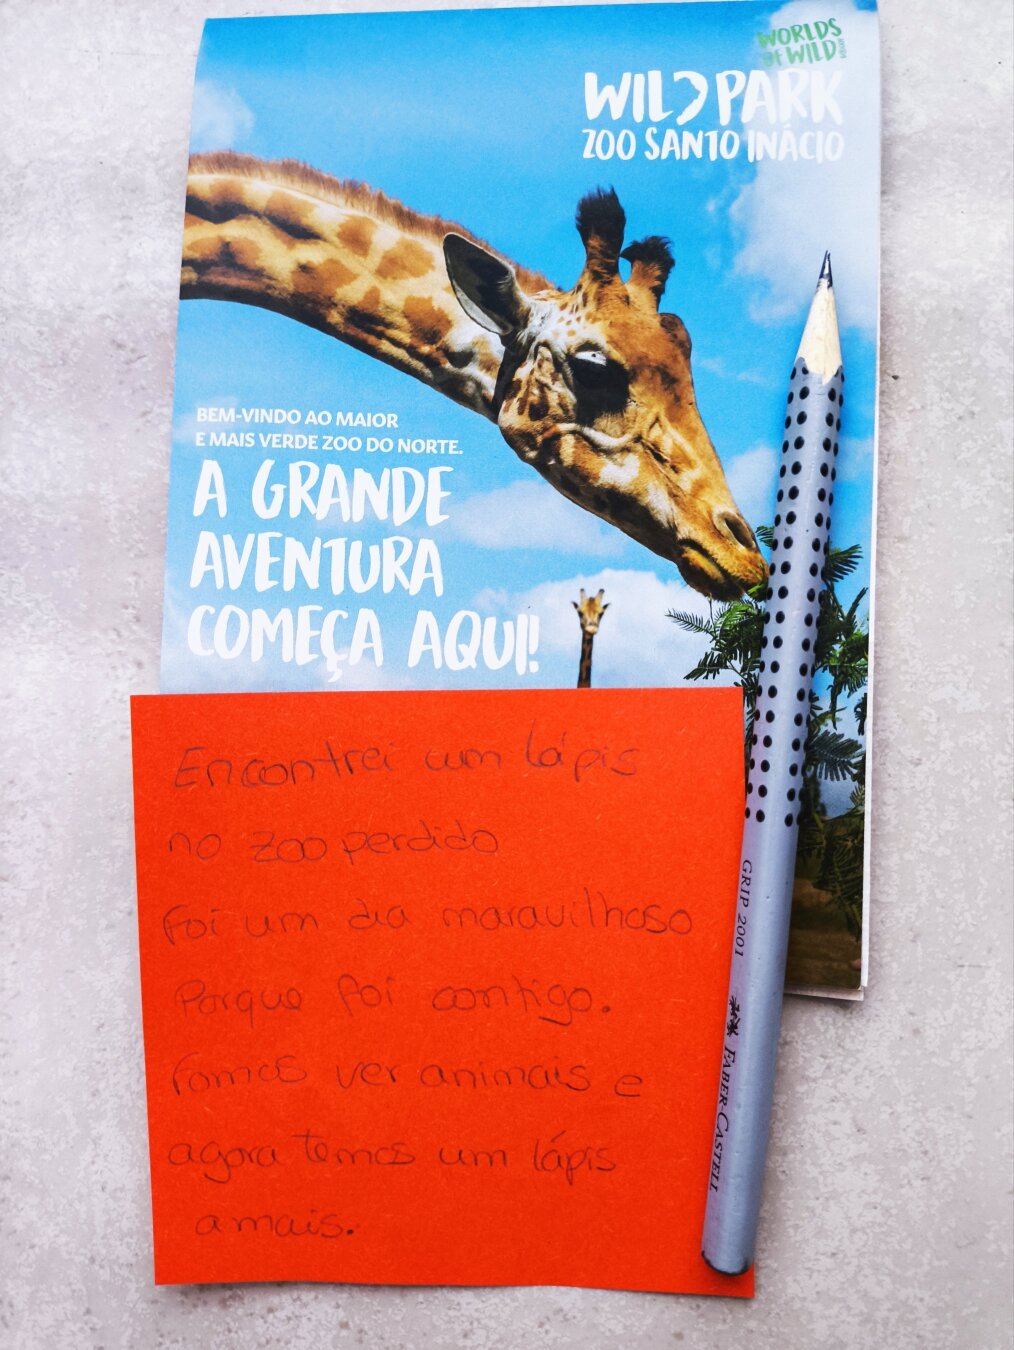 WORLDS
OF WILD
WILD PARK
ZOO SANTO INÁCIO
BEM-VINDO AO MAIOR
E MAIS VERDE ZOO DO NORTE.
A GRANDE
AVENTURA
COMEÇA AQUI!
Encontrei um lápis
no zoo perdido
Foi um dia maravilhoso
Porque foi contigo.
Fomos ver animais e
agora temos um lápis
amais.
GRIP 2001 FABER-CASTELL